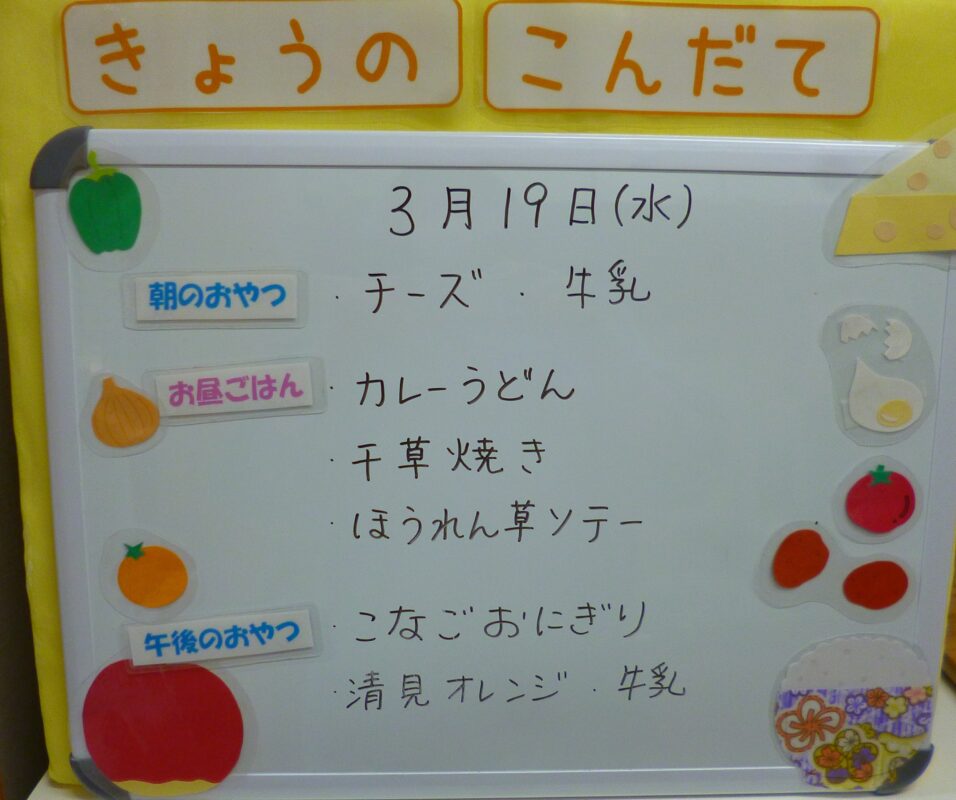 きょうの こんだて
3月19日(水)
朝のおやつ ・チーズ ・牛乳
お昼ごはん ・カレーうどん
・千草焼き
・ほうれん草ソテー
午後のおやつ ・こなごおにぎり
・清見オレンジ ・牛乳